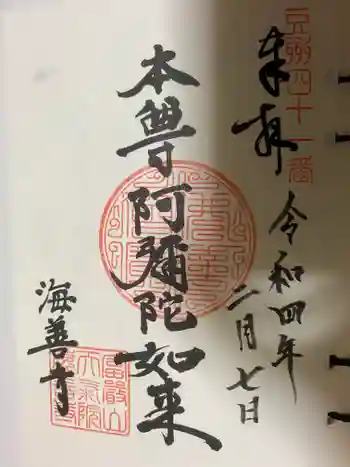 豆州四十一番
奉拝
令和四年
二月七日
本尊阿彌陀如来
海善寺